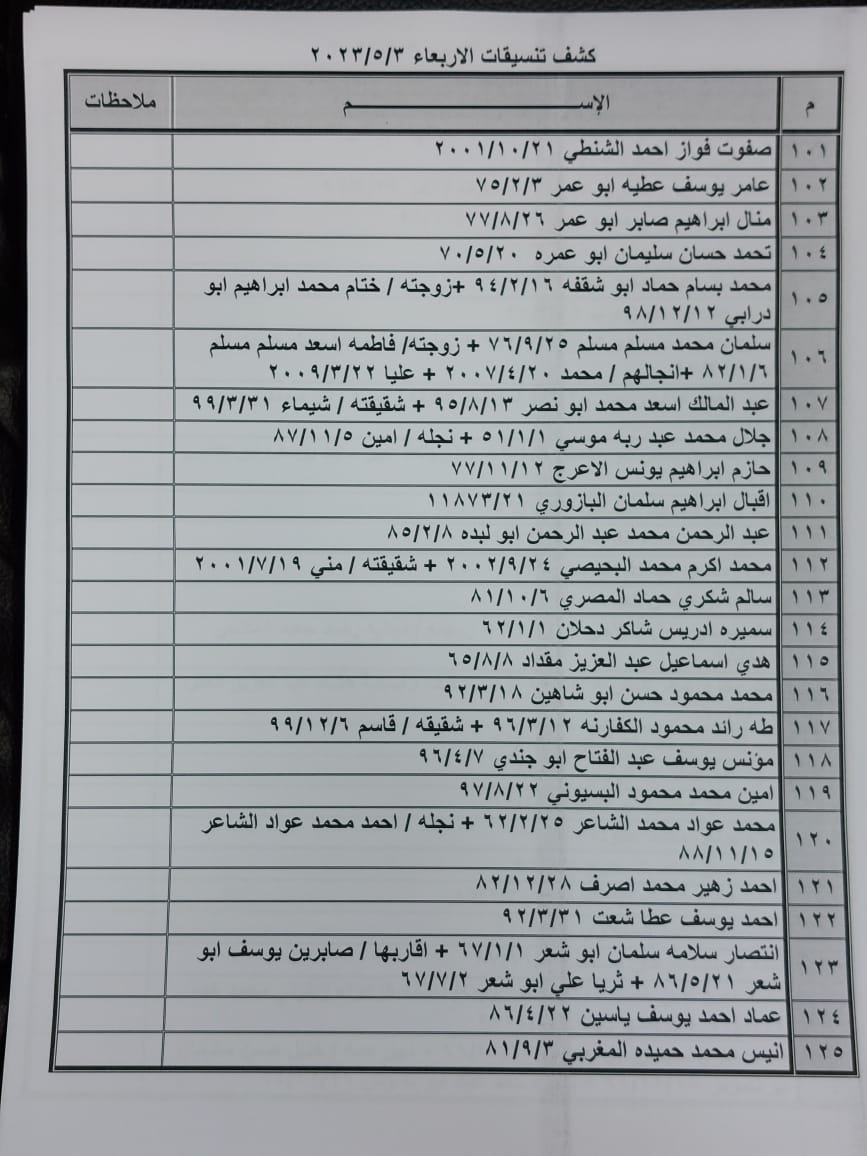 كشف تنسيقات الاربعاء ٢٠٢٣/٥/٣
م الإســـــــم ملاحظات
١٠١ صفوت فواز احمد الشنطي ٢٠٠١/١٠/٢١
١٠٢ عامر يوسف عطيه ابو عمر ٧٥/٢/٣
١٠٣ منال ابراهيم صابر ابو عمر ٧٧/٨/٢٦
١٠٤ تحمد حسان سليمان ابو عمره ٧٠/٥/٢٠
١٠٥ محمد بسام حماد ابو شقفه ٩٤/٢/١٦ +زوجته / ختام محمد ابراهيم ابو
درابي ٩٨/١٢/١٢
١٠٦ سلمان محمد مسلم مسلم ٧٦/٩/٢٥ + زوجته/ فاطمه اسعد مسلم مسلم
٨٢/١/٦ +انجالهم / محمد ٢٠٠٧/٤/٢٠ + عليا ٢٠٠٩/٣/٢٢
١٠٧ عبد المالك اسعد محمد ابو نصر ٩٥/٨/١٣ + شقيقته / شيماء ٩٩/٣/٣١
١٠٨ جلال محمد عبد ربه موسي ٥١/١/١ + نجله / امين ٨٧/١١/٥
١٠٩ حازم ابراهيم يونس الاعرج ٧٧/١١/١٢
١١٠ اقبال ابراهيم سلمان البازوري ١١٨٧٣/٢١
١١١ عبد الرحمن محمد عبد الرحمن ابو لبده ٨٥/٢/٨
١١٢ محمد اكرم محمد البحيصي ٢٠٠٢/٩/٢٤ + شقيقته / مني ٢٠٠١/٧/١٩
١١٣ سالم شكري حماد المصري ٨١/١٠/٦
١١٤ سميره ادريس شاكر دحلان ٦٢/١/١
١١٥ هدي اسماعيل عبد العزيز مقداد ٦٥/٨/٨
١١٦ محمد محمود حسن ابو شاهين ٩٢/٣/١٨
١١٧ طه رائد محمود الكفارنه ٩٦/٣/١٢ + شقيقه / قاسم ٩٩/١٢/٦
١١٨ مؤنس يوسف عبد الفتاح ابو جندي ٩٦/٤/٧
١١٩ امين محمد محمود البسيوني ٩٧/٨/٢٢
١٢٠ محمد عواد محمد الشاعر ٦٢/٢/٢٥ + نجله / احمد محمد عواد الشاعر
٨٨/١١/١٥
١٢١ احمد زهير محمد اصرف ٨٢/١٢/٢٨
١٢٢ احمد يوسف عطا شعت ٩٢/٣/٣١
١٢٣ انتصار سلامه سلمان ابو شعر ٦٧/١/١ + اقاربها / صابرين يوسف ابو
شعر ٨٦/٥/٢١ + ثريا علي ابو شعر ٦٧/٧/٢
١٢٤ عماد احمد يوسف ياسين ٨٦/٤/٢٢
١٢٥ انيس محمد حميده المغربي ٨١/٩/٣